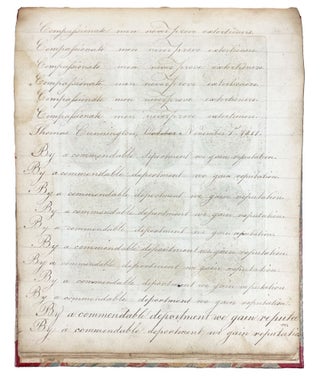 Compassionate men never prove extortioners.
Compassionate men never prove extortioners.
Compassionate men never prove extortioners.
Compassionate men never prove extortioners.
Compassionate men never prove extortioners.
Compassionate men never prove extortioners.
Thomas October November 1st
By a commendable deportment we gain reputation.
By a commendable deportment we gain reputation.
By a commendable deportment we gain reputation.
By a commendable deportment we gain reputation.
By a commendable deportment we gain reputation.
By a commendable deportment we gain reputation.
By a commendable deportment we gain reputation.
By a commendable deportment we gain reputation.
By a commendable deportment we gain reputation.
By a commendable deportment we gain reputation.
By a commendable deportment we gain
By a commendable deportment we gain reputation